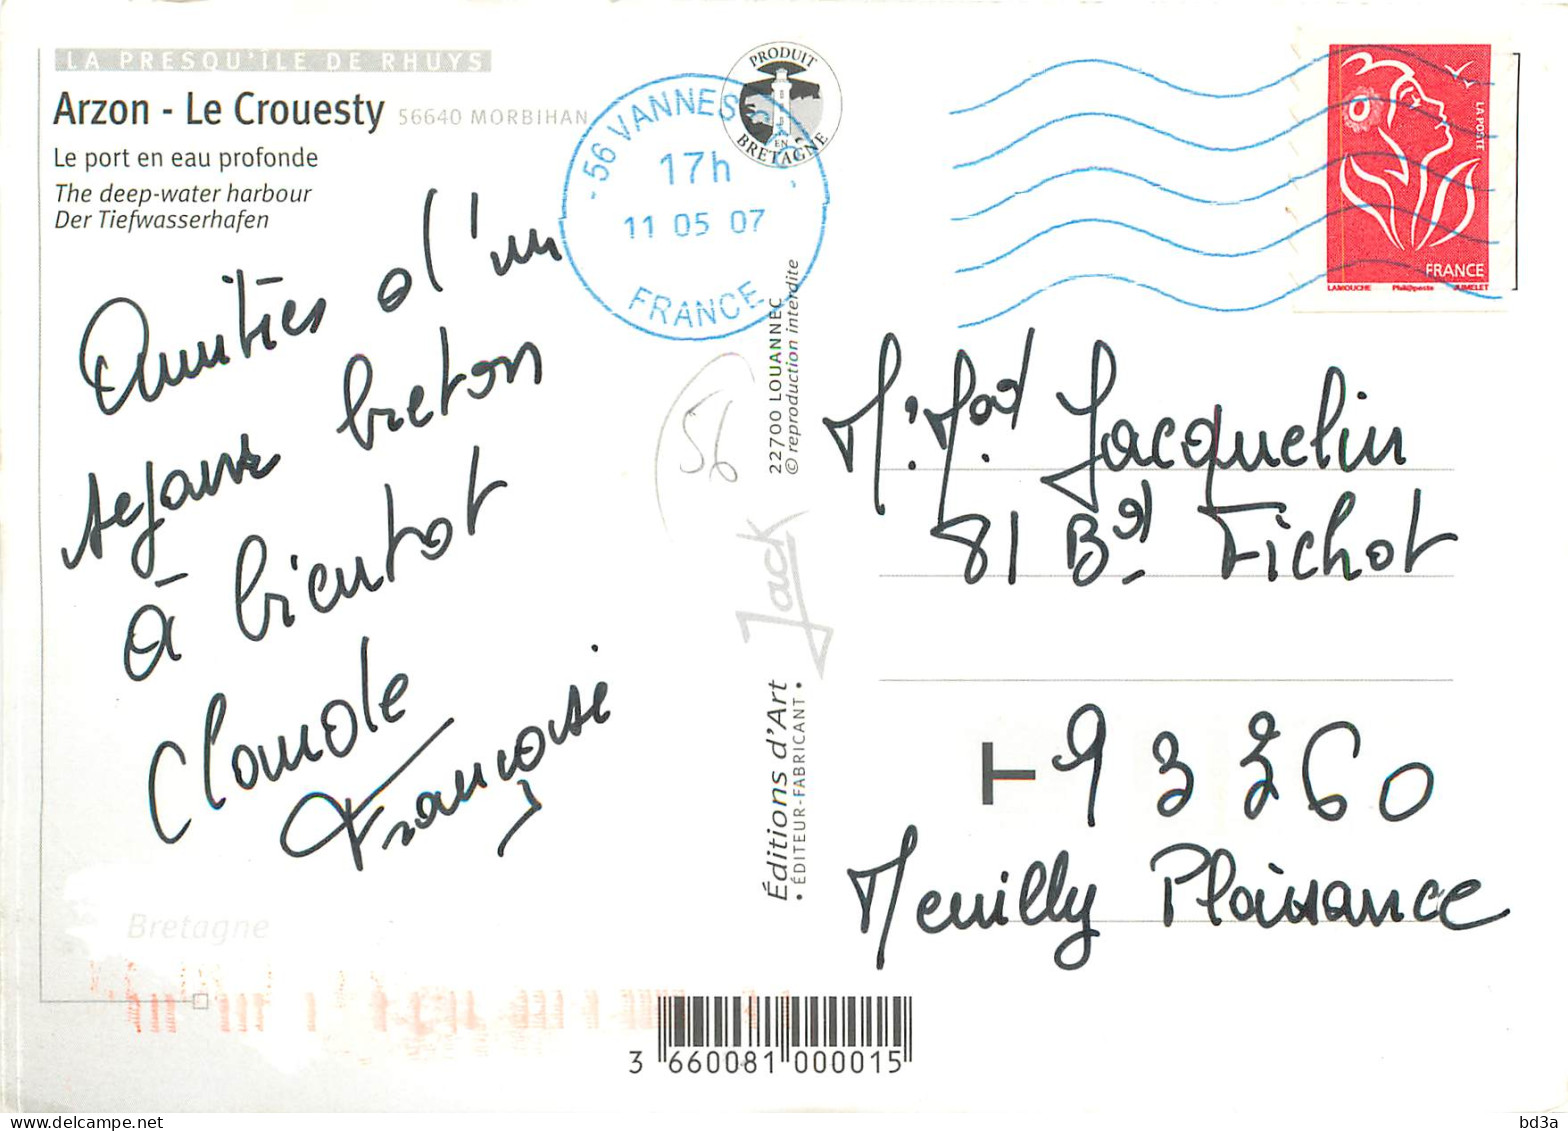 LA PRESQU'ÎLE DE RHUYS
Arzon - Le Crouesty 56640 MORBIHAN
Le port en eau profonde
The deep-water harbour
Der Tiefwasserhafen
Amitiés d'un
séjour breton
à bientot
Claude
Françoise
Bretagne
PRODUIT
EN
BRETAGNE
56 VANNES
17h
11 05 07
FRANCE
56
22700 LOUANNEC
© reproduction interdite
Jack
Éditions d'Art
• ÉDITEUR-FABRICANT •
LA POSTE
FRANCE
LAMOUCHE Phil@poste JUMELET
M. Mad Jacquelin
81 Bd Fichot
T 93360
Neuilly Plaisance
3 660081 000015
bd3a